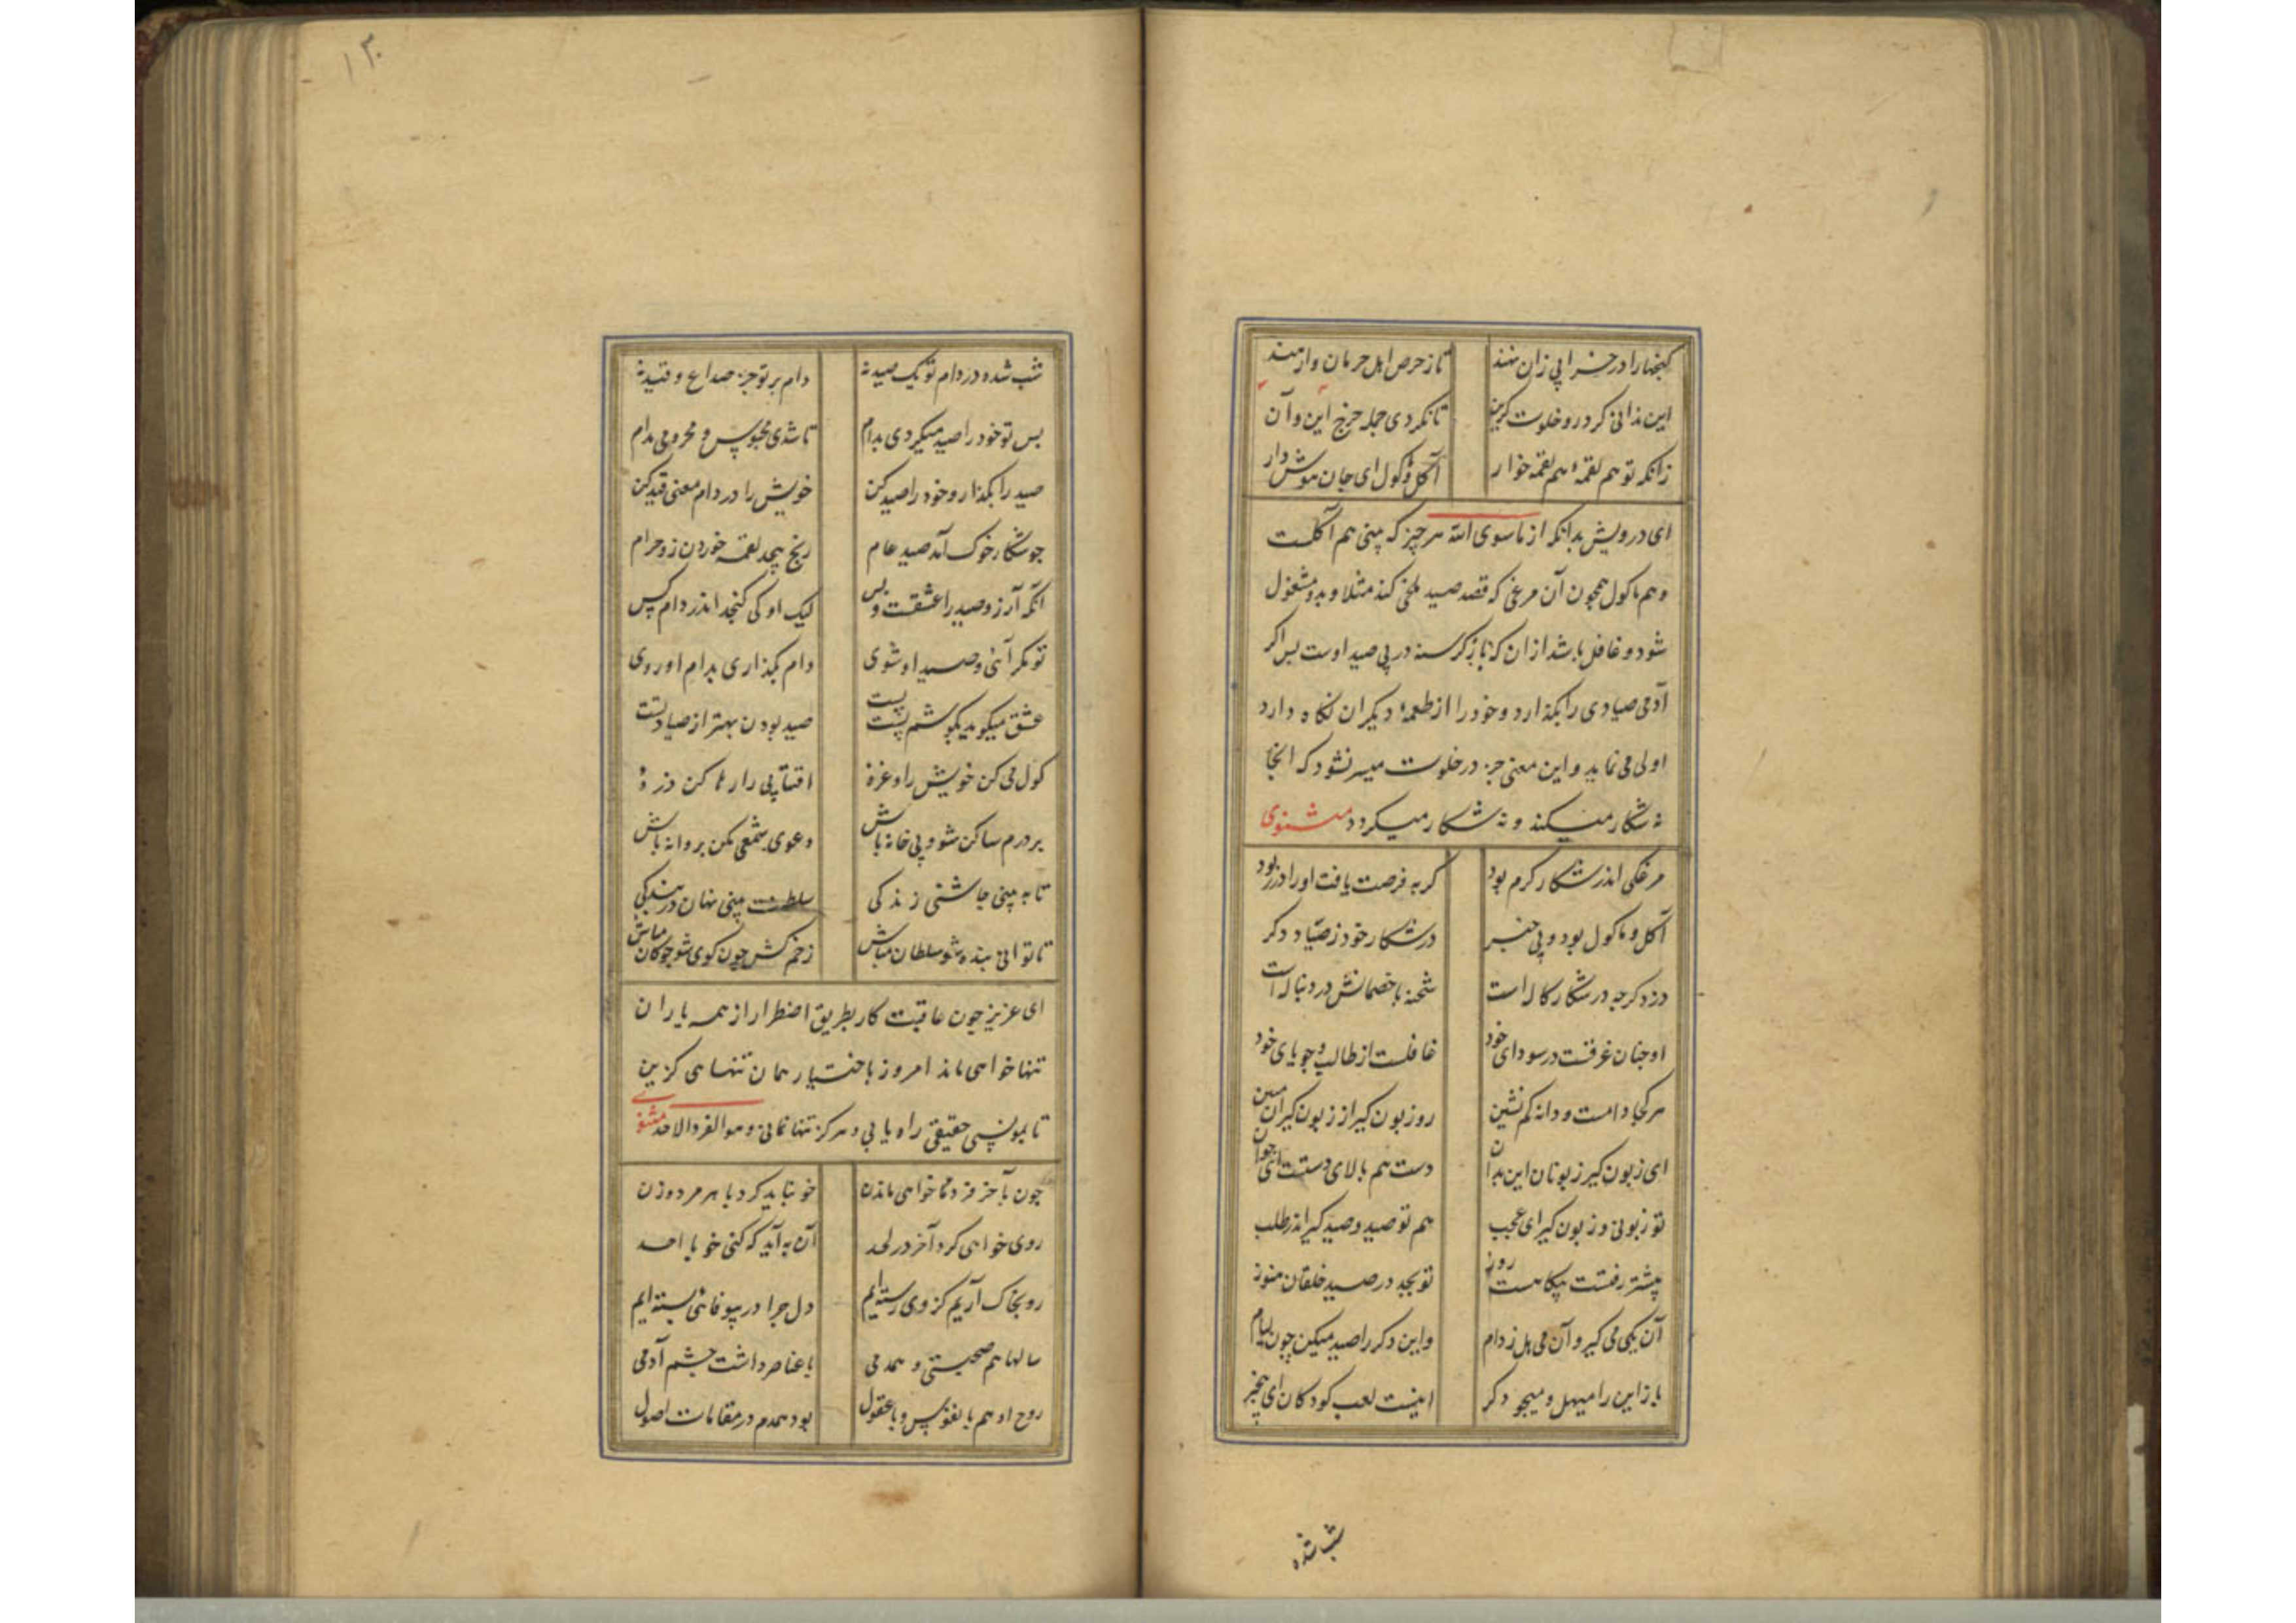 کنجها را در خرابی زان نهند تا ز حرص اهل حرمان وارهند
این ندانی کرد رو خلوت کزین تا نکردی جمله خرج این و آن
زانکه تو هم لقمهٔ هم لقمه خوار آکل و ماکول ای جان هوش دار
ای درویش بدانکه از ماسوی الله هر چیز که بینی هم آکلست
و هم ماکول همچون آن مرغی که قصد صید ملخی کند مثلا و بدو مشغول
شود و غافل باشد از ان که باز کرسنه در پی صید اوست بس اکر
آدمی صیادی را بکذارد و خود را از طعمهٔ دیکران نکاه دارد
اولی می نماید و این معنی جز در خلوت میسر نشود که انجا
نه شکار میکند و نه شکار میکردد مثنوی
مرغکی اندر شکار کرم بود کربه فرصت یافت او را در ربود
آکل و ماکول بود و بی خبر در شکار خود ز صیاد دکر
دزد کرچه در شکار کاله است شحنه با خصمانش در دنباله است
او چنان غرقست در سودای خود غافلست از طالب و جویای خود
هر کجا دامست و دانه کم نشین رو زبون کیر از زبون کیران ببین
ای زبون کیر زبونان این بدان دست هم بالای دستت ای جوان
تو زبونی و زبون کیر ای عجب هم تو صید و صید کیر اندر طلب
بیشتر رفتست بیکاهست روز تو بجد در صید خلقان هنوز
آن یکی می کیر و آن می هل ز دام و این دکر را صید میکن چون لیام
باز این را میهل و میجو دکر اینت لعب کودکان ای بیخبر
شب شده
۱۳۰
شب شده در دام تو یک صید نه دام بر تو جز صداع و قید نه
بس تو خود را صید میکردی بدام تا شدی محبوس و محرومی مدام
صید را بکذار و خود را صید کن خویش را در دام معنی قید کن
چو شکار خوک آمد صید عام رنج بیحد لقمه خوردن زو حرام
آنکه آرزو صید را عشقست و بس لیک او کی کنجد اندر دام کس
تو مکر آئی و صید او شوی دام بکذاری بدام او روی
عشق میکوید بکوشم پست پست صید بودن بهتر از صیادیست
کول می کن خویش را و غره آفتابی را رها کن ذرهٔ
بر درم ساکن شو و بی خانه باش دعوی شمعی مکن پروانه باش
تا به بینی چاشنی زندکی سلطنت بینی نهان در بندکی
تا توانی بنده شو سلطان مباش زخم کش چون کوی شو چوکان مباش
ای عزیز چون عاقبت کار بطریق اضطرار از همه یاران
تنها خواهی ماند امروز باختیار همان تنهاهی کزین
تا بمونس حقیقی راه یابی و هرکز تنها نمانی و هو الفرد الاحد مثنوی
چون بآخر فرد ما خواهی ماندن خو نباید کرد با هر مرد و زن
روی خواهی کرد آخر در لحد آن به آید که کنی خو با احد
رو بخاک آریم کز وی رسته ایم دل چرا در بیوفائی بسته ایم
سالها هم صحبتی و همدمی با عناصر داشت جسم آدمی
روح او هم با نفوس و با عقول بود همدم در مقامات اصول